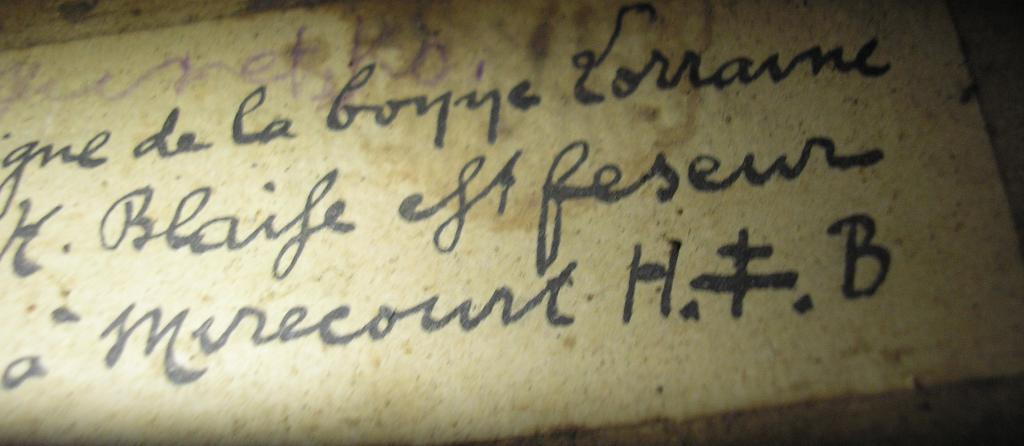 gne de la bonne Lorraine
K. Blaise est feseur
à Mirecourt H.‡. B